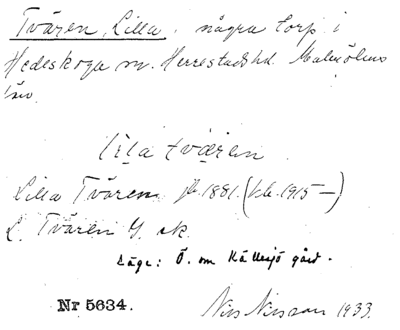 Tvären, Lilla, några torp i
Hedeskoga sn. Herrestads hd. Malmöhus
län.
lila tværen
Lilla Tvären jb. 1881. (kb. 1915 —)
L. Tvären G. ek.
Läge: Ö. om Källesjö gård.
Nr 5634.
Nils Nilsson 1933.